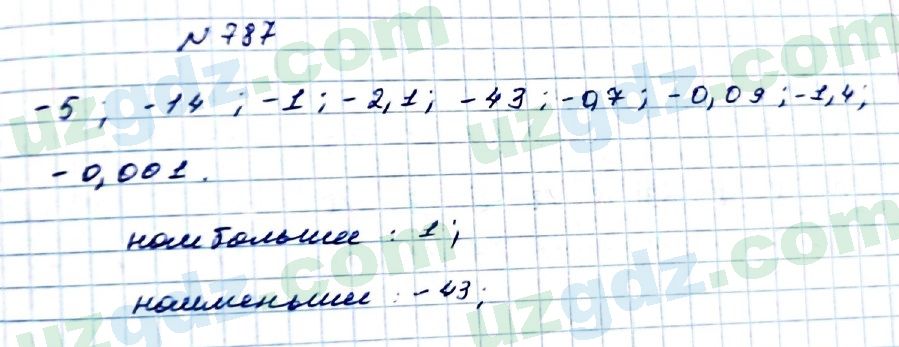 № 787
-5; -14; -1; -2,1; -43; -0,7; -0,09; -1,4;
-0,001.
наибольшее: 1;
наименьшее: -43;
uzgdz.com
uzgdz.com
uzgdz.com
uzgdz.com
uzgdz.com